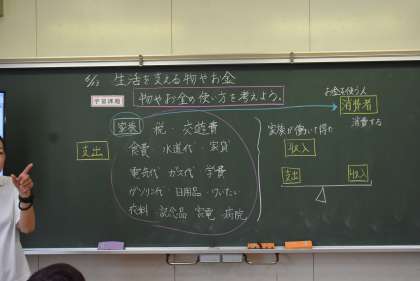 5/12 生活を支える物やお金
学習課題 物やお金の使い方を考えよう。
お金を使う人
消費者
消費する
支出
家族 税・交遊費
食費・水道代・家賃
電気代・ガス代・学費
ガソリン代・日用品・けいたい
衣料・記念品・家電・病院
家族が働いて得た
収入
支出 収入